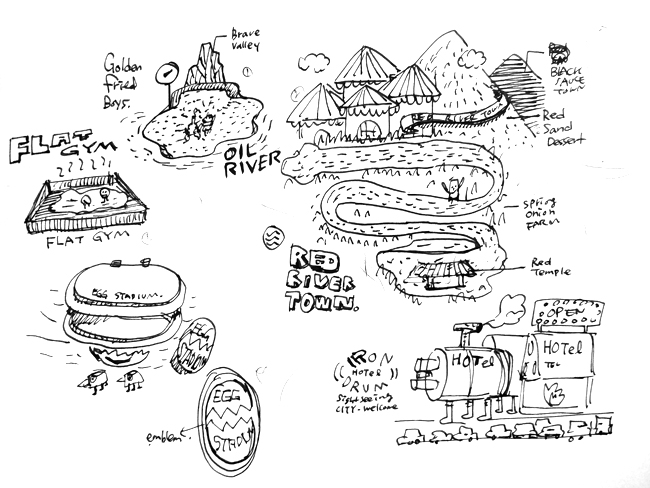 Brave
Valley
Golden
Fried
Boys.
OIL
RIVER
FLAT
GYM
FLAT GYM
BLACK
SAUCE
TOWN
RED RIVER TOWN
Red
Sand
Dessert
Spring
Onion
FARM
Red
Temple
RED
RIVER
TOWN.
EGG STADIUM.
EGG
emblem
IRON
HOTEL
DRUM
Sightseeing
CITY-welcome
HOTel
OPEN
HOTel
TEL